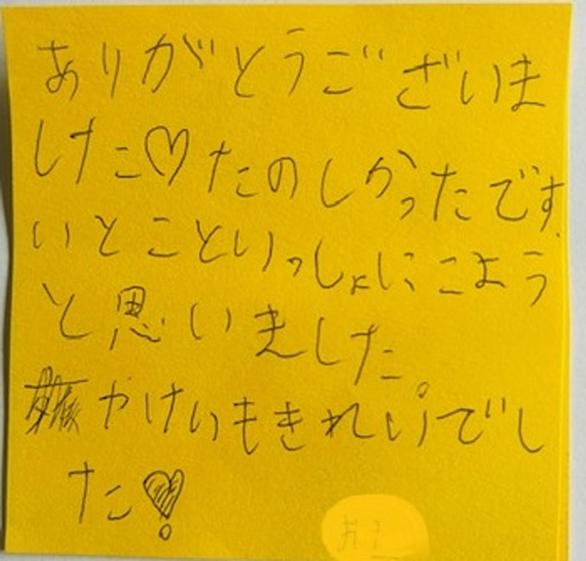 ありがとうございま
した♡たのしかったです。
いとこといっしょにこよう
と思いました。
やけいもきれいでし
た♥!